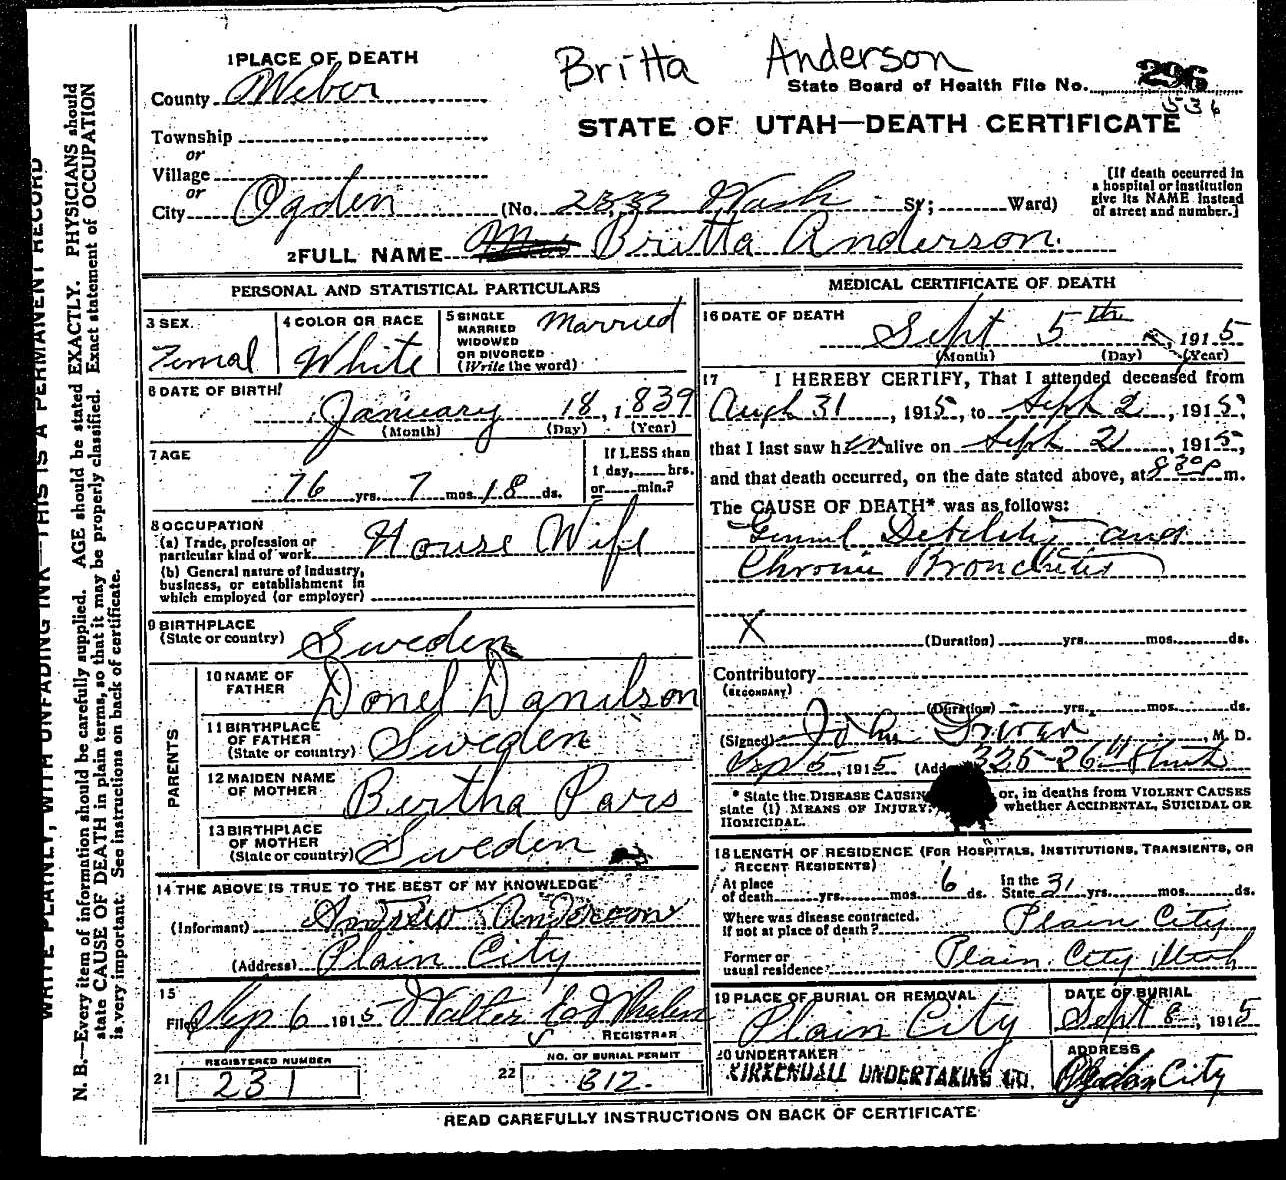 Britta Anderson
1 PLACE OF DEATH
County Weber
State Board of Health File No. 296
536
STATE OF UTAH—DEATH CERTIFICATE
Township
or
Village
or
City Ogden (No. Wash St; Ward)
[If death occurred in a hospital or institution give its NAME instead of street and number.]
2 FULL NAME Mrs Britta Anderson.
PERSONAL AND STATISTICAL PARTICULARS
3 SEX. Femal
4 COLOR OR RACE White
5 SINGLE MARRIED WIDOWED OR DIVORCED (Write the word) Married
6 DATE OF BIRTH
January 18, 1839
(Month) (Day) (Year)
7 AGE
76 yrs. 7 mos. 18 ds.
If LESS than 1 day, hrs. or min.?
8 OCCUPATION
(a) Trade, profession or particular kind of work House Wife
(b) General nature of industry, business, or establishment in which employed (or employer)
9 BIRTHPLACE
(State or country) Sweden
PARENTS
10 NAME OF FATHER Donel Danilson
11 BIRTHPLACE OF FATHER (State or country) Sweden
12 MAIDEN NAME OF MOTHER Bertha Pars
13 BIRTHPLACE OF MOTHER (State or country) Sweden
14 THE ABOVE IS TRUE TO THE BEST OF MY KNOWLEDGE
(Informant) Andrew Anderson
(Address) Plain City
15
Filed Sep 6 1915 Walter E
REGISTRAR
REGISTERED NUMBER
21 231
NO. OF BURIAL PERMIT
22 312.
MEDICAL CERTIFICATE OF DEATH
16 DATE OF DEATH
Sept 5th, 1915
(Month) (Day) (Year)
17 I HEREBY CERTIFY, That I attended deceased from
Augh 31, 1915, to Sept 2, 1915,
that I last saw her alive on Sept 2, 1915,
and that death occurred, on the date stated above, at 830 P m.
The CAUSE OF DEATH* was as follows:
Genral Debility and
Chronic Bronchitis
X
(Duration) yrs. mos. ds.
Contributory
(SECONDARY)
(Duration) yrs. mos. ds.
(Signed) John Driver, M. D.
Sep 5, 1915 (Add 325-26th Street
* State the DISEASE CAUSIN or, in deaths from VIOLENT CAUSES
state (1) MEANS OF INJURY; whether ACCIDENTAL, SUICIDAL OR
HOMICIDAL.
18 LENGTH OF RESIDENCE (FOR HOSPITALS, INSTITUTIONS, TRANSIENTS, OR RECENT RESIDENTS)
At place of death yrs. mos. 6 ds. In the State 31 yrs. mos. ds.
Where was disease contracted, if not at place of death? Plain City
Former or usual residence Plain City Utah
19 PLACE OF BURIAL OR REMOVAL
Plain City
DATE OF BURIAL
Sept 8, 1915
20 UNDERTAKER
KIRKENDALL UNDERTAKING CO.
ADDRESS
Ogden City
READ CAREFULLY INSTRUCTIONS ON BACK OF CERTIFICATE
WRITE PLAINLY, WITH UNFADING INK—THIS IS A PERMANENT RECORD
N. B.—Every item of information should be carefully supplied. AGE should be stated EXACTLY. PHYSICIANS should
state CAUSE OF DEATH in plain terms, so that it may be properly classified. Exact statement of OCCUPATION
is very important. See instructions on back of certificate.